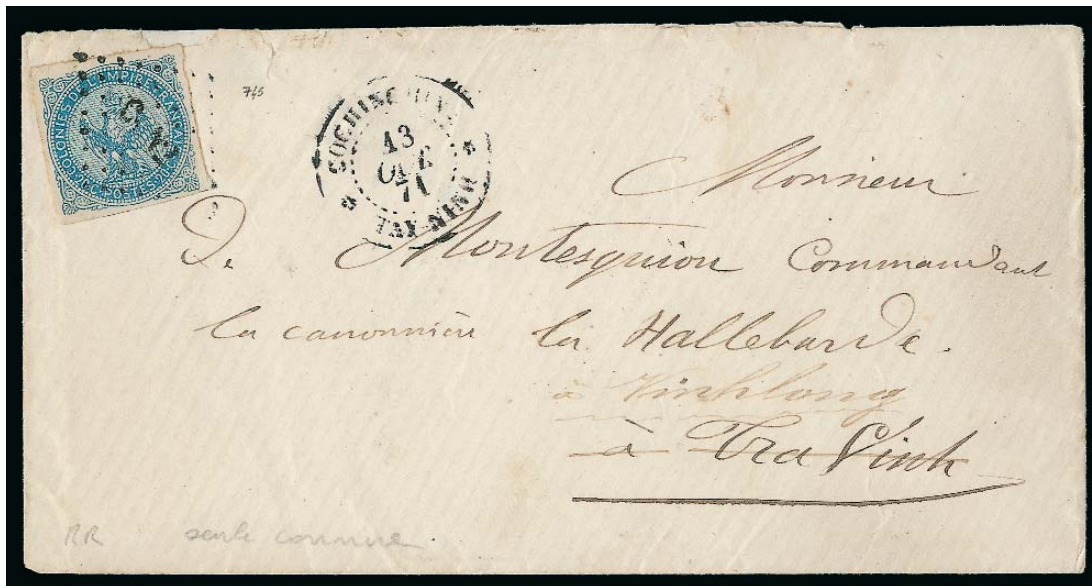 COLONIES DE L'EMPIRE FRANÇAIS
POSTES
745
COCHINCHINE
13
OCT
71
TAY-NINH
Monsieur
De Montesquiou Commandant
la canonnière la Hallebarde.
à Vinhlong
à Tra Vinh
RR seule connue.